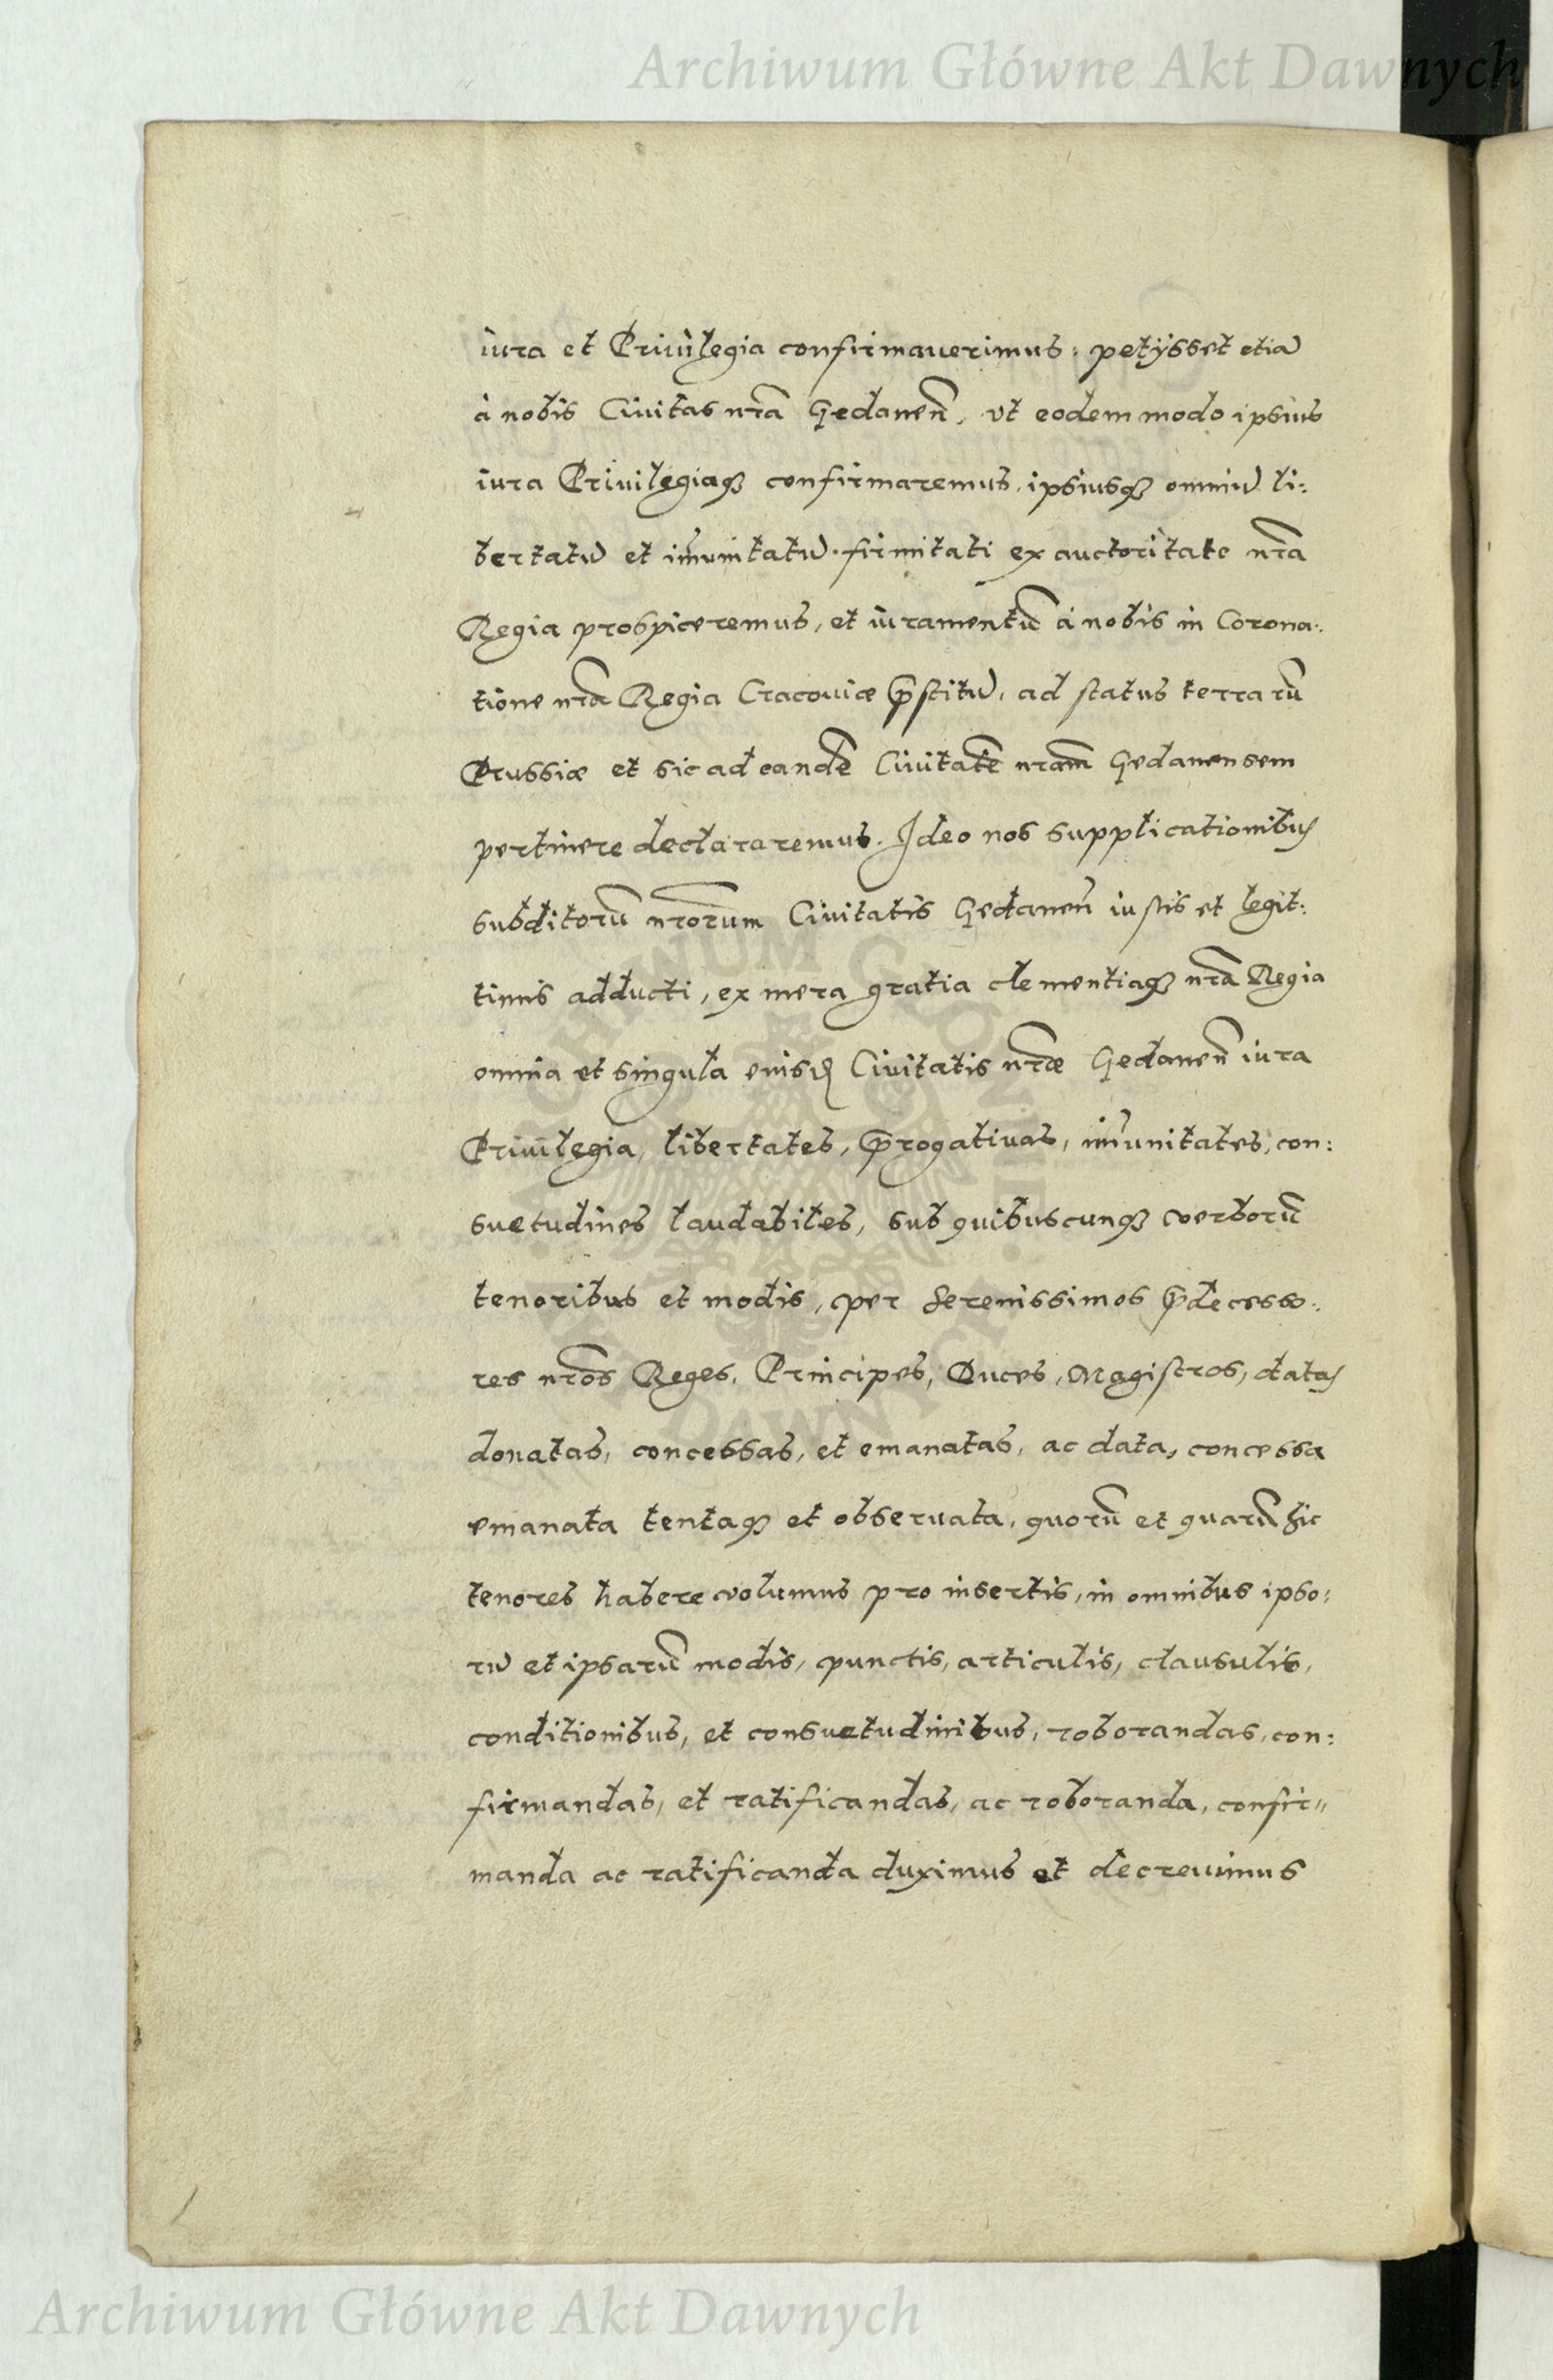 Archiwum Główne Akt Dawnych
iura et Priuilegia confirmauerimus: petÿsset etiā
à nobis Ciuitas nr̃a Gedanen̄, vt eodem modo ipsius
iura Priuilegiaqȝ confirmaremus, ipsiusqȝ omniū li:
bertatū et im̄unitatū firmitati ex auctoritate nr̃a
Regia prospiceremus, et iuramentū à nobis in Corona:
tione nr̃a Regia Cracouiæ p̄stitū, ad status terrarū
Prussiæ et sic ad eandē Ciuitatē nr̃am Gedanensem
pertinere declararemus. Ideo nos supplicationibus
subditorū nr̃orum Ciuitatis Gedanen̄ iustis et legit:
timis adducti, ex mera gratia clementiaqȝ nr̃a Regia
omnia et singula eiusđ Ciuitatis nr̃æ Gedanen̄ iura
Priuilegia, libertates, p̄rogatiuas, im̄unitates, con:
suetudines laudabiles, sub quibuscunqȝ verborū
tenoribus et modis, per Serenissimos p̄decesso:
res nr̃os Reges, Principes, Duces, Magistros, datas
donatas, concessas, et emanatas, ac data, concessa
emanata tentaqȝ et obseruata, quorū et quarū hic
tenores habere volumus pro insertis, in omnibus ipso:
rū et ipsarū modis, punctis, articulis, clausulis,
conditionibus, et consuetudinibus, roborandas, con:
firmandas, et ratificandas, ac roboranda, confir„
manda ac ratificanda duximus et decreuimus
Archiwum Główne Akt Dawnych